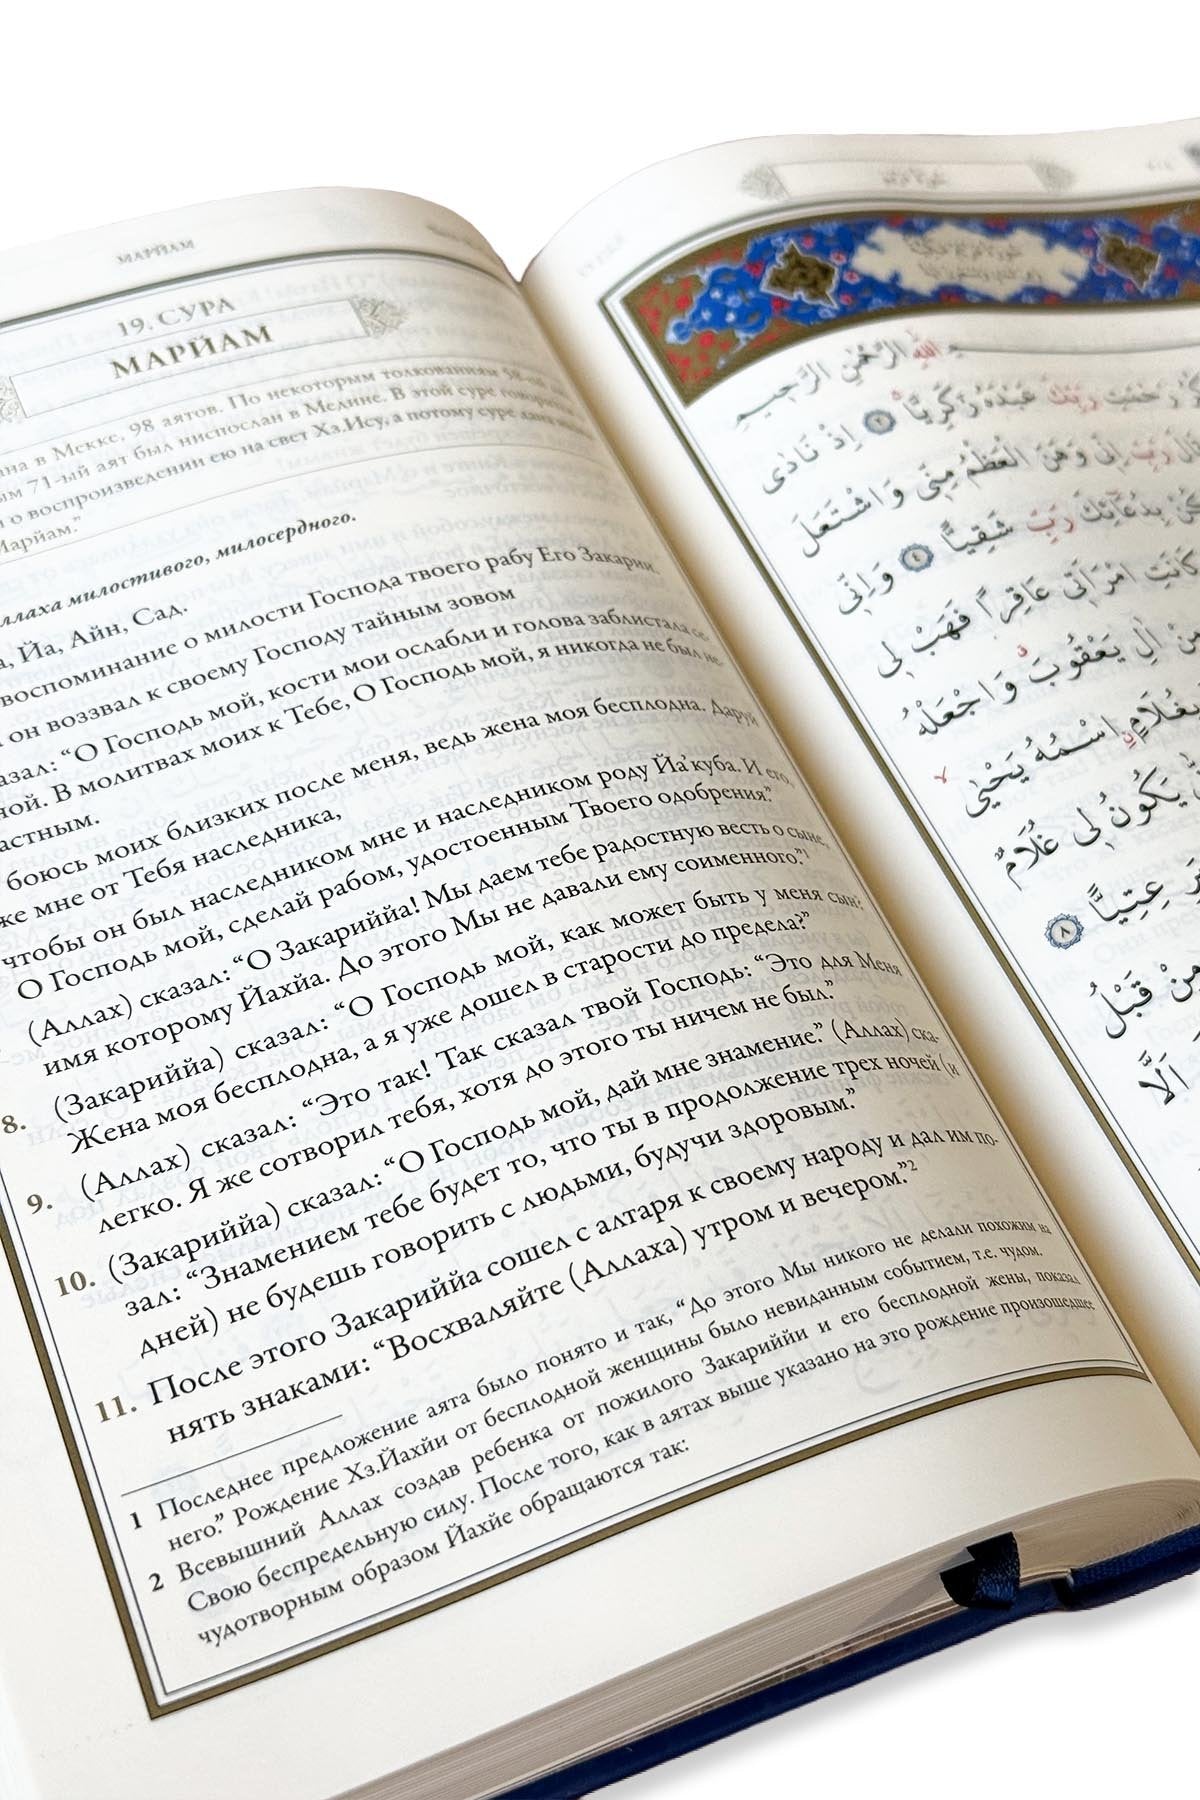 МАРЙАМ
19. СУРА
МАРЙАМ
в Мекке, 98 аятов. По некоторым толкованиям
71-ый аят был ниспослан в Медине. В этой суре говорится
о воспроизведении ею на свет Хз.Ису, а потому суре дано
Марйам."
милостивого, милосердного.
Йа, Айн, Сад.
воспоминание о милости Господа твоего рабу Его Закарии.
он воззвал к своему Господу тайным зовом
"О Господь мой, кости мои ослабли и голова заблистала се-
В молитвах моих к Тебе, О Господь мой, я никогда не был не-
боюсь моих близких после меня, ведь жена моя бесплодна. Даруй
же мне от Тебя наследника,
чтобы он был наследником мне и наследником роду Йа'куба. И его,
О Господь мой, сделай рабом, удостоенным Твоего одобрения."
(Аллах) сказал: "О Закариййа! Мы даем тебе радостную весть о сыне,
имя которому Йахйа. До этого Мы не давали ему соименного."1
8. (Закариййа) сказал: "О Господь мой, как может быть у меня сын?
Жена моя бесплодна, а я уже дошел в старости до предела?"
9. (Аллах) сказал: "Это так! Так сказал твой Господь: "Это для Меня
легко. Я же сотворил тебя, хотя до этого ты ничем не был."
10. (Закариййа) сказал: "О Господь мой, дай мне знамение." (Аллах) ска-
зал: "Знамением тебе будет то, что ты в продолжение трех ночей (и
дней) не будешь говорить с людьми, будучи здоровым."
11. После этого Закариййа сошел с алтаря к своему народу и дал им по-
нять знаками: "Восхваляйте (Аллаха) утром и вечером."2
1 Последнее предложение аята было понято и так, "До этого Мы никого не делали похожим на
него." Рождение Хз.Йахйи от бесплодной женщины было невиданным событием, т.е. чудом.
2 Всевышний Аллах создав ребенка от пожилого Закариййи и его бесплодной жены, показал
Свою беспредельную силу. После того, как в аятах выше указано на это рождение произошедшее
чудотворным образом Йахйе обращаются так:
اللّٰهِ الرَّحْمٰنِ الرَّحِيمِ
رَحْمَتِ رَبِّكَ عَبْدَهُ زَكَرِيَّا ٢ اِذْ نَادٰى
رَبِّ اِنّٖى وَهَنَ الْعَظْمُ مِنّٖى وَاشْتَعَلَ
بِدُعَائِكَ رَبِّ شَقِيًّا ٤ وَاِنّٖى
كَانَتِ امْرَاَتٖى عَاقِرًا فَهَبْ لٖى
مِنْ اٰلِ يَعْقُوبَ وَاجْعَلْهُ
بِغُلَامٍ اسْمُهُ يَحْيٰى
يَكُونُ لٖى غُلَامٌ
عِتِيًّا ٨
مِنْ قَبْلُ
اَلَّا